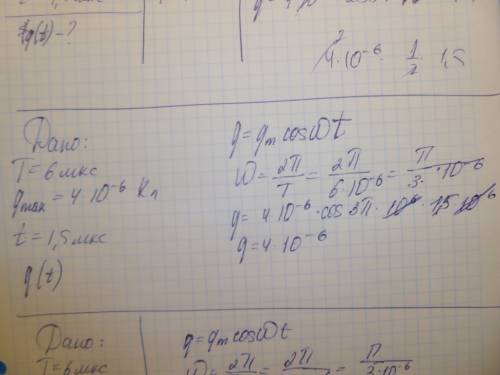 q(t) - ?
4·10⁻⁶ · 1/2 · 1,5
Дано:
T = 6 мкс
qmax = 4 10⁻⁶ Кл
t = 1,5 мкс
q(t)
q = qm cosωt
ω = 2П/T = 2П/6·10⁻⁶ = П/3· · 10⁻⁶
q = 4·10⁻⁶ · cos 3П · 10⁶ · 1,5 10⁻⁶
q = 4·10⁻⁶
Дано:
T = 6 мкс
q = qm cosωt
ω = 2П = 2П = П/3·10⁻⁶